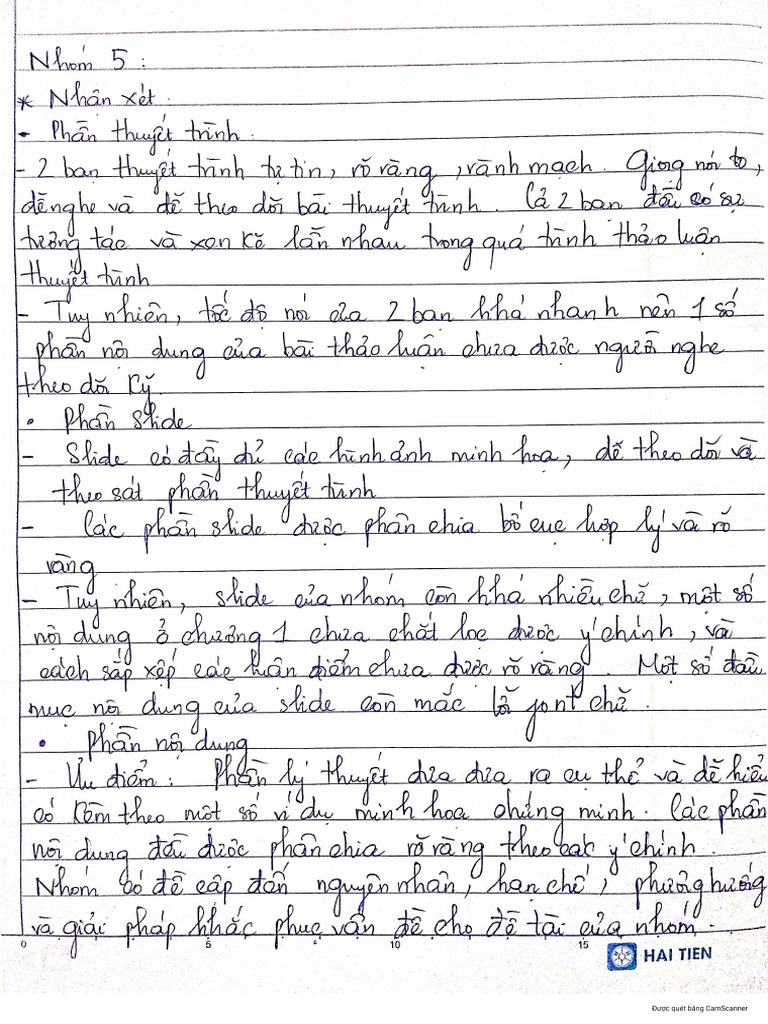 Nhóm 5 :
* Nhận xét :
- Phần thuyết trình :
- 2 bạn thuyết trình tự tin, rõ ràng, rành mạch. Giọng nói to,
dễ nghe và dễ theo dõi bài thuyết trình. Cả 2 bạn đều có sự
tương tác và xen kẽ lẫn nhau trong quá trình thảo luận
thuyết trình
- Tuy nhiên, tốc độ nói của 2 bạn khá nhanh nên 1 số
phần nội dung của bài thảo luận chưa được người nghe
theo dõi kỹ.
• Phần slide
- Slide có đầy đủ các hình ảnh minh họa, dễ theo dõi và
theo sát phần thuyết trình
- Các phần slide được phân chia bố cục hợp lý và rõ
ràng
- Tuy nhiên, slide của nhóm còn khá nhiều chữ, một số
nội dung ở chương 1 chưa chắt lọc được ý chính, và
cách sắp xếp các luận điểm chưa được rõ ràng. Một số đầu
mục nội dung của slide còn mắc lỗi font chữ.
• Phần nội dung
- Ưu điểm : Phần lý thuyết đưa đưa ra cụ thể và dễ hiểu
có kèm theo một số ví dụ minh họa chứng minh. Các phần
nội dung đều được phân chia rõ ràng theo các ý chính.
Nhóm có đề cập đến nguyên nhân, hạn chế, phương hướng
và giải pháp khắc phục vấn đề cho đề tài của nhóm.
0 5 10 15
HAI TIEN
Được quét bằng CamScanner